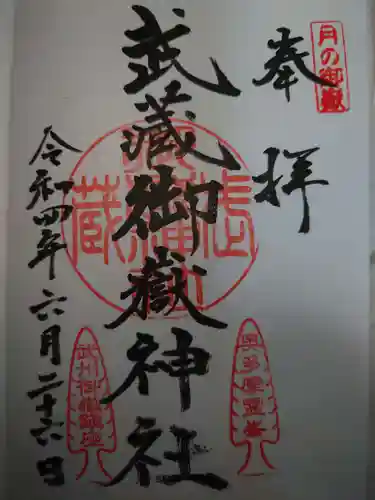 月の御嶽
奉拝
武蔵御嶽神社
令和四年六月二十六日
奥多摩霊峯
武州御嶽鎮座